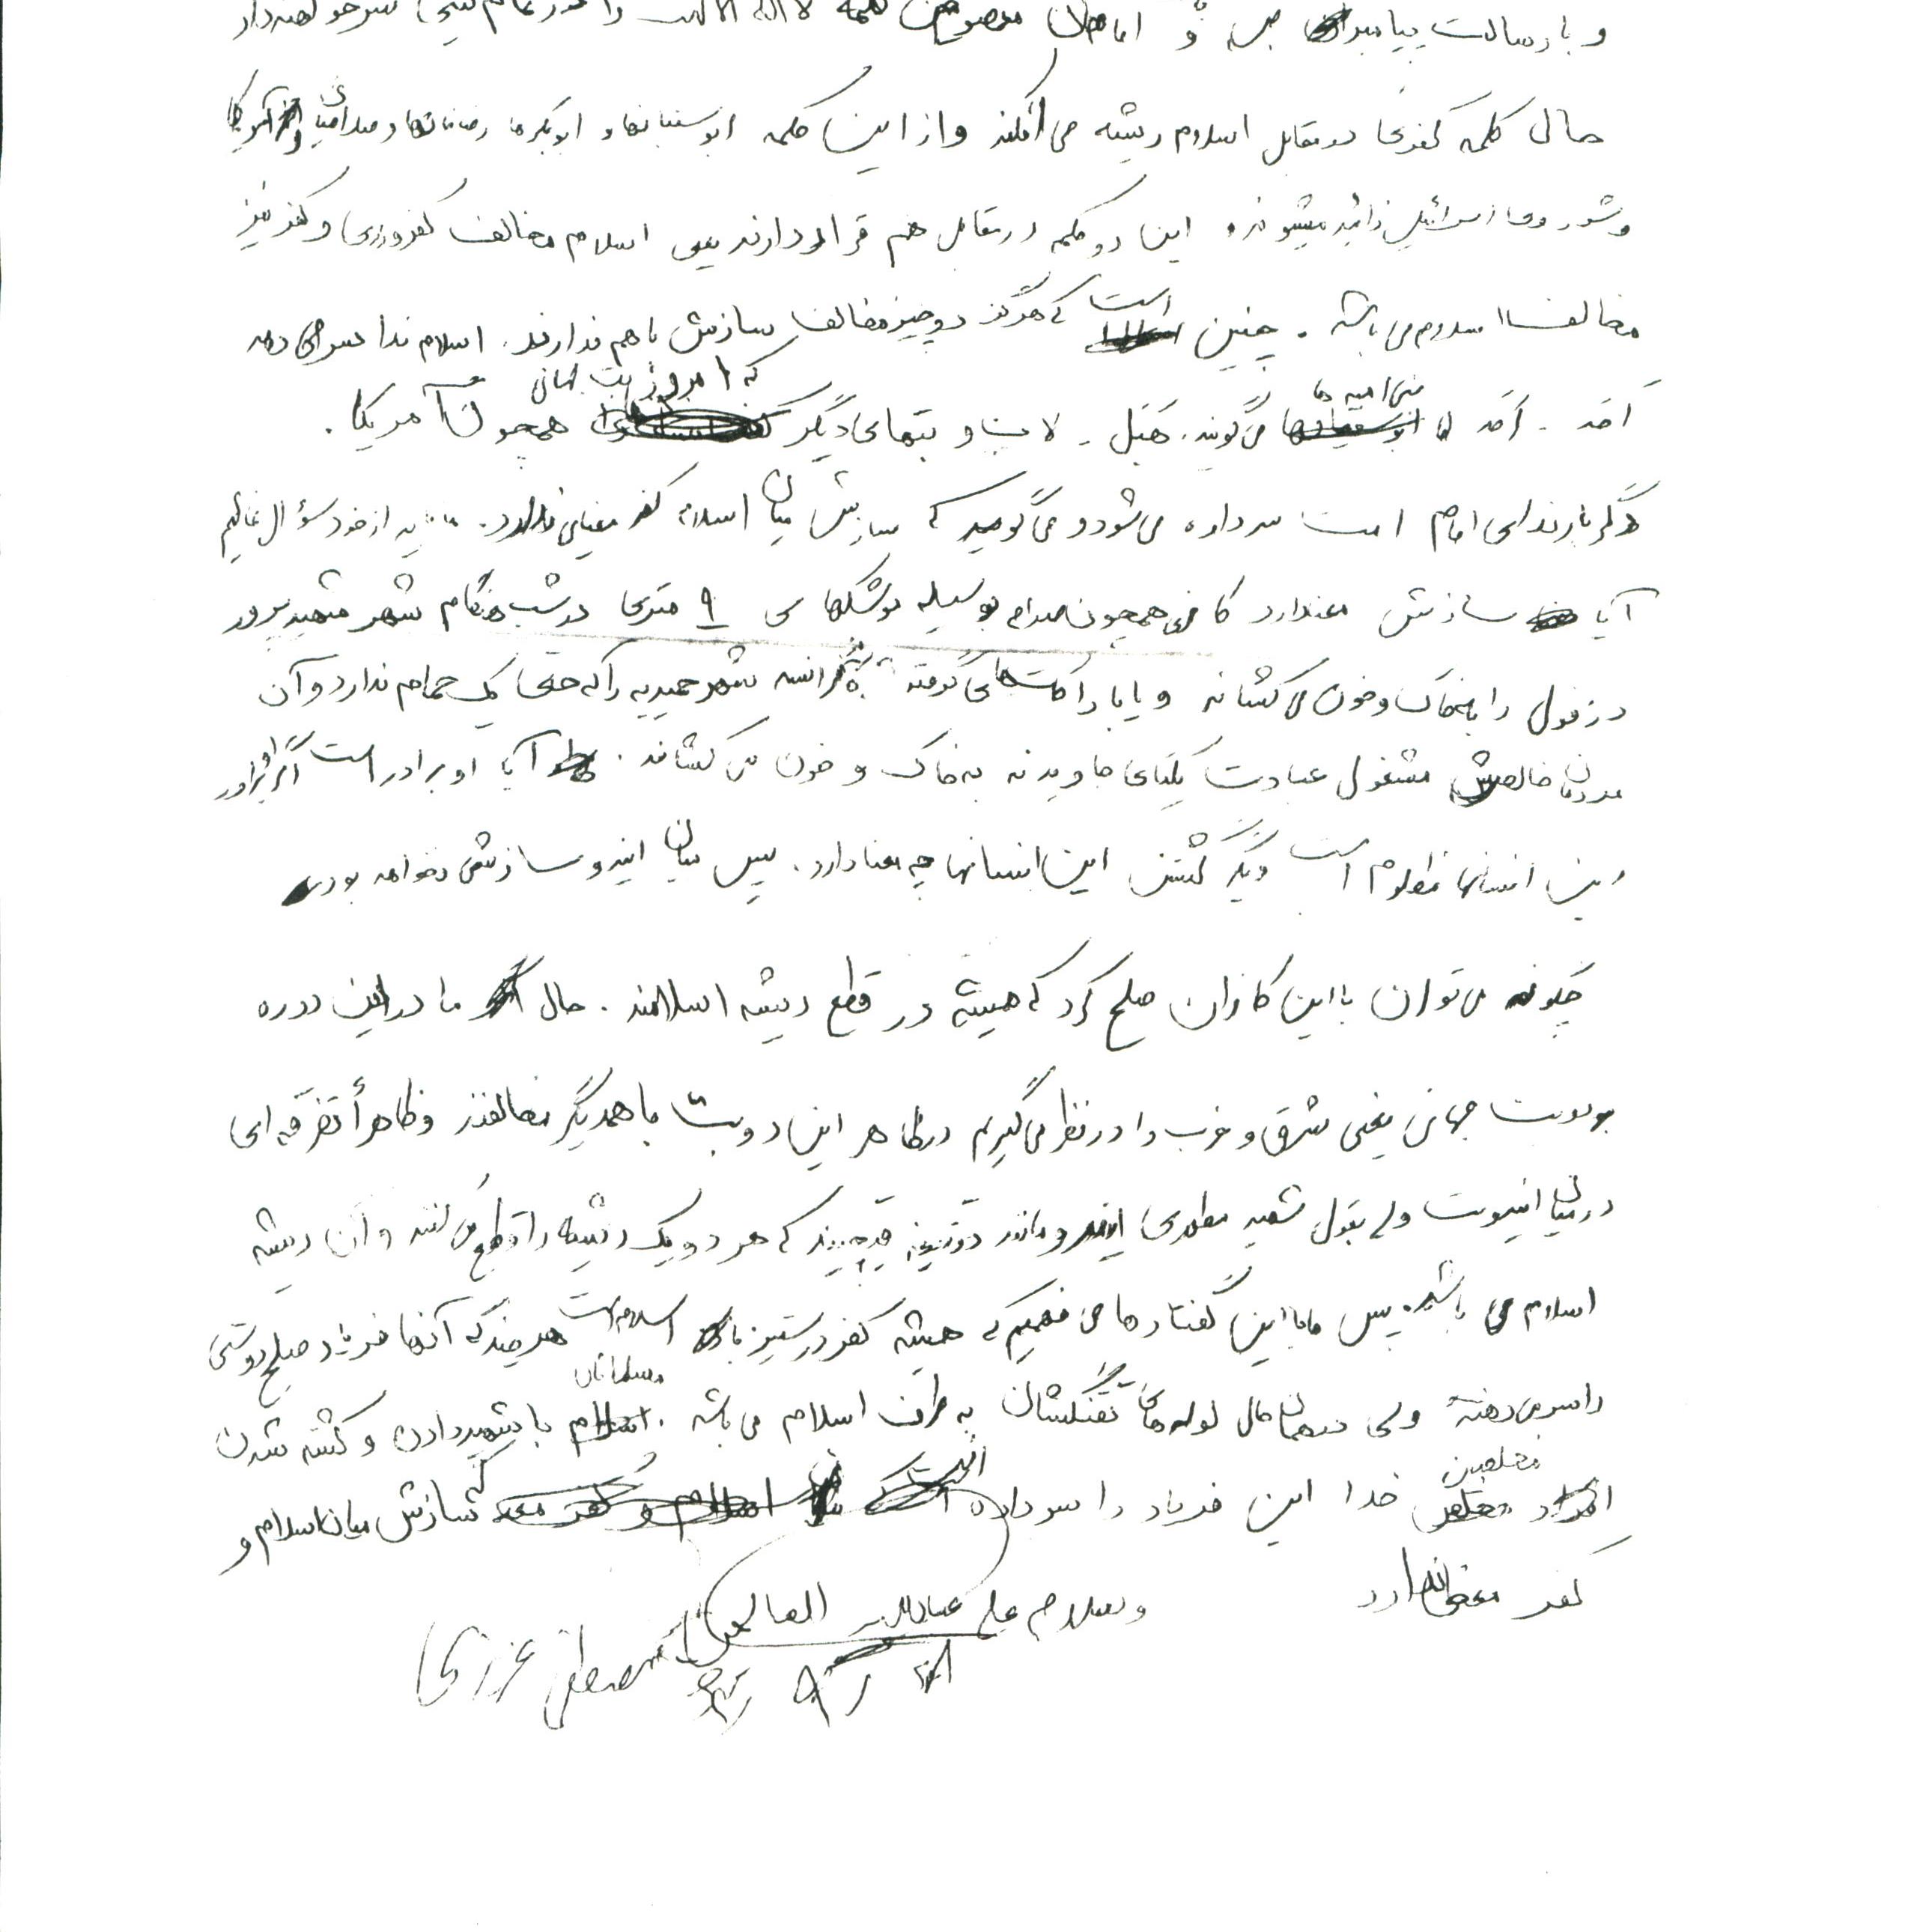 و بار رسالت پیامبران و امامان معصوم کلمه لا اله الا الله را در تمام گیتی سر خواهند داد
حال کلمه کفری در مقابل اسلام ریشه می افکند و از این کلمه ابوسفیانها و ابوبکرها رضاخانها و صدامیها و آمریکا
و شوروی اسرائیل زائیده میشوند و این دو کلمه در مقابل هم قرار دارند یعنی اسلام مخالف کفر ورزی و کفر نیز
مخالف اسلام می باشد. چنین است که هرگز دو چیز مخالف سازش با هم ندارند. اسلام ندا سر می دهد
اَحَد - اَحَد اما بنی امیه ها می گویند. هُبَل - لات و بتهای دیگر که امروز بت جهانی همچون آمریکا.
دگر بار ندای امام امت سر داده می شود و می گوید که سازش میان اسلام کفر معنایی ندارد. ما باید از خود سؤال نمائیم
آیا سازش معنا دارد کافری همچون صدام بوسیله موشکهای ۹ متری در شب هنگام شهر شهیدپرور
دزفول را بخاک و خون می کشاند و یا با راکت های گرفته از فرانسه شهر حمیدیه را که حتی یک حمام ندارد و آن
مردمان خالصش مشغول عبادت یکتای جاویدند به خاک و خون می کشاند. آیا او برادر است اگر او برادر
این انسانهای مظلوم است دیگر کشتن این انسانها چه معنا دارد. پس میان ایندو سازشی نخواهد بود
چگونه می توان با این کافران صلح کرد که همیشه در قطع ریشه اسلامند. حال ما در این دوره
دو بت جهانی یعنی شرق و غرب را در نظر می گیریم در ظاهر این دو بت با همدیگر مخالفند و ظاهراً تفرقه ای
در میان اینهاست ولی بقول شهید مطهری ایندو مانند دو تیغه قیچیند که هر دو یک ریشه را قطع می کنند و آن ریشه
اسلام می باشد. پس ما با این گفتارها می فهمیم که همیشه کفر در ستیز با اسلام است هر چند که آنها فریاد صلح دوستی
را سر می دهند ولی در همان حال لوله های تفنگشان به طرف اسلام می باشد. مسلمانان با شهید دادن و کشته شدن
افراد مخلصین خدا این فریاد را سر داده است که سازش میان اسلام و
کفر معنا ندارد
و سلام علی عبادالله الصالحین
مصطفی عزیزی